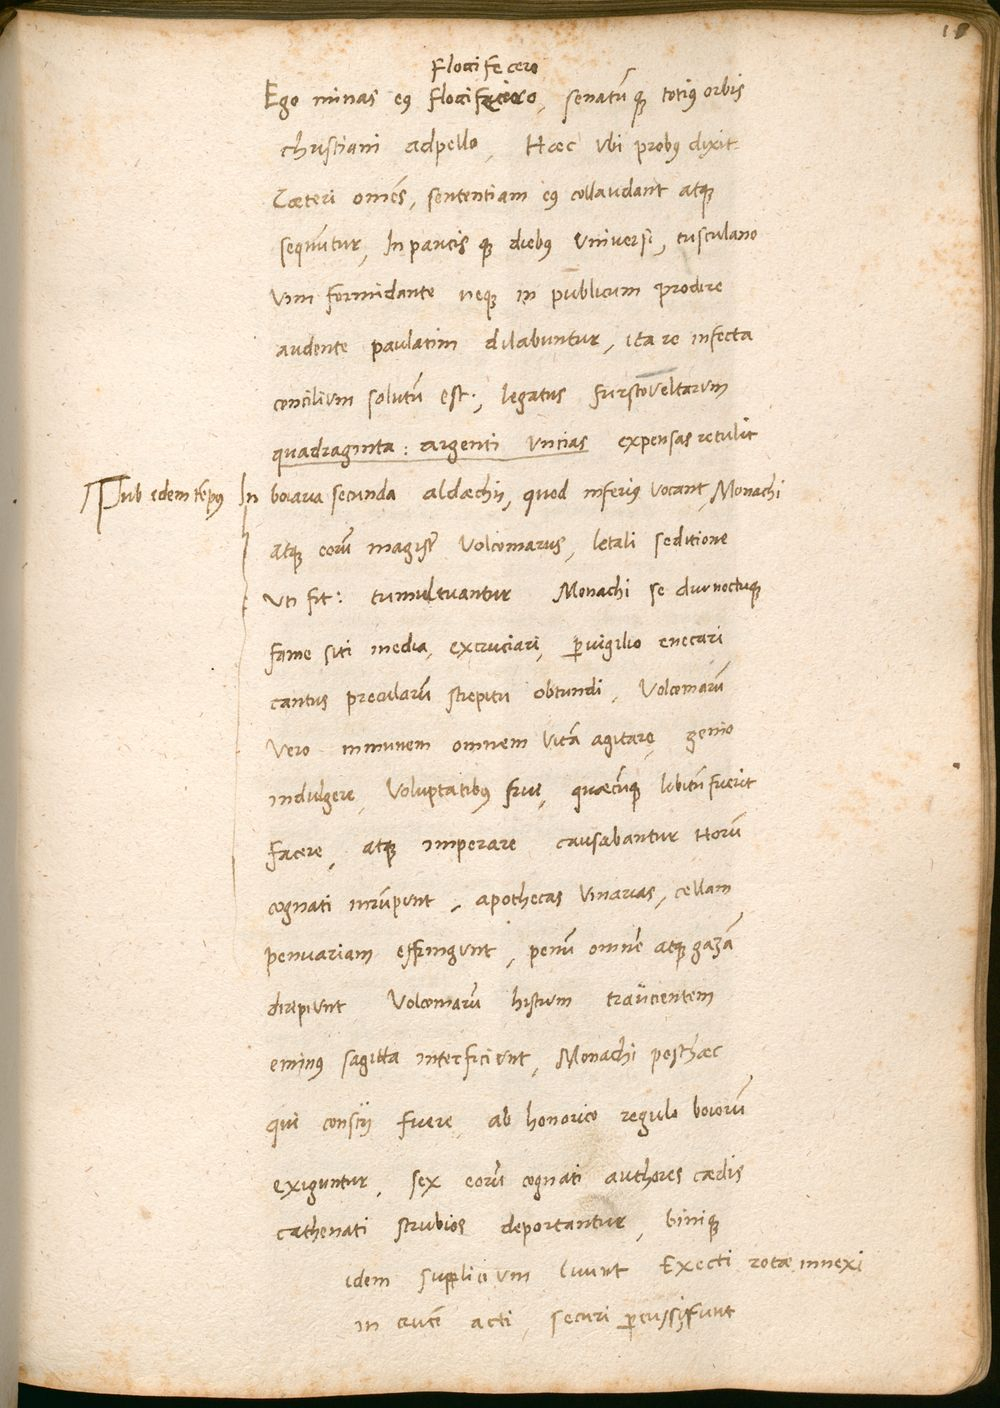 18
Flocci fecero
Ego minas eꝰ flocci, senatūqꝫ totiꝰ orbis
christiani adpello, Hæc vbi probꝰ dixit
Cæteri omēs, sententiam eꝰ collaudant atqꝫ
sequūtur, In paucis qꝫ diebꝰ vniversi, tusculano
vim formidante neqꝫ in publicum prodire
audente paulatim dilabuntur, ita re infecta
concilium solutū est., legatus furstoveltarum
quadraginta: argenti vncias expensas retulit
Sub idem tēpꝰ In boiaria secunda aldæchij, quod inferiꝰ vocant, Monachi
atqꝫ eorū magistr Volcomarus, letali seditione
Vti fit: tumultuantur Monachi se diu noctuqꝫ
fame siti media, excruciari, ꝑuigilio enecari
cantus precularū strepitu obtundi, Volcomarū
vero inmunem omnem vitā agitare, genio
indulgere, Voluptatibꝰ frui, quæcūqꝫ libitū fuerit
facere, atqꝫ imperare causabantur Horū
cognati inrūpunt, apothecas vinarias, cellam
penuariam effringunt, penū omnē atqꝫ gazā
diripiunt Volcomarū histrum traijcientem
eminꝰ sagitta interficiunt, Monachi posthæc
qui conscij fuere, ab honorico regulo boiorū
exiguntur, sex eorū cognati authores cædis
cathenati strubios deportantur, biniqꝫ
idem supplicium luunt Execti rotæ innexi
in crucē acti, securi ꝑcussi funt